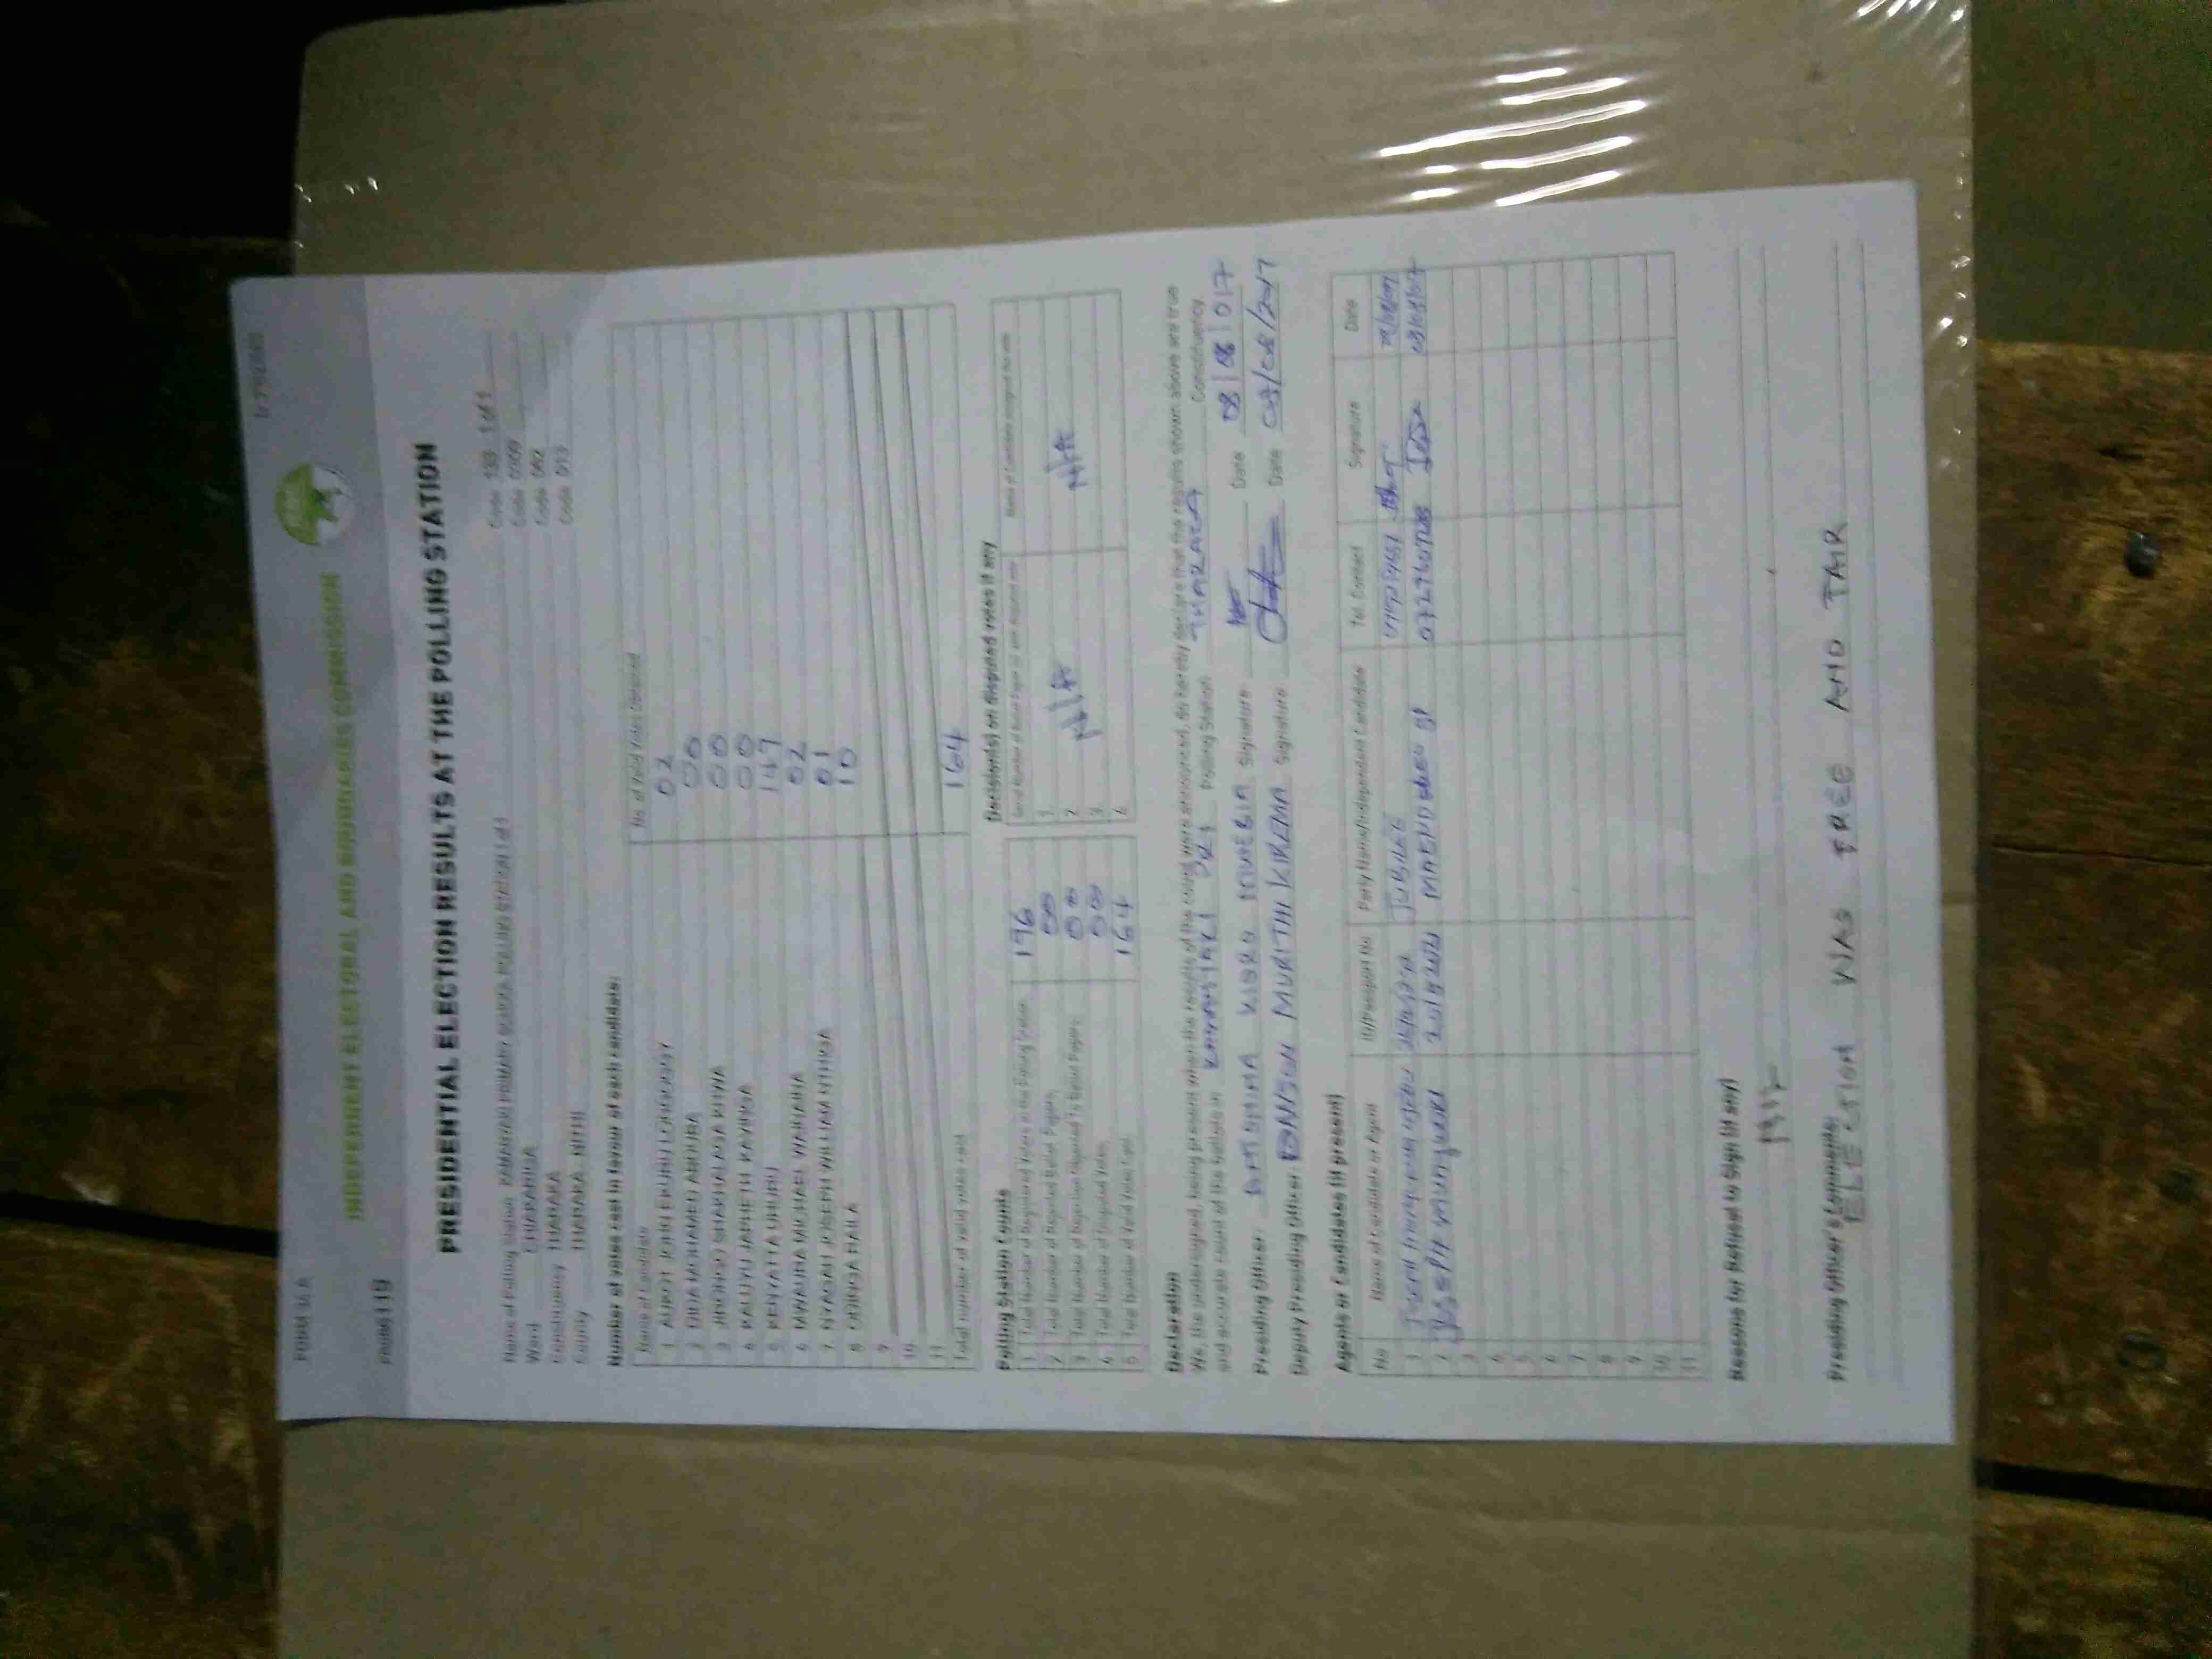 FORM 34A
INDEPENDENT ELECTORAL AND BOUNDARIES COMMISSION
PRESIDENTIAL ELECTION RESULTS AT THE POLLING STATION
Name of Polling Station PRIMARY SCHOOL POLLING STATION 1 of 1 Code 133 1 of 1
Ward CHIAKARIGA Code 0309
Constituency THARAKA Code 062
County THARAKA - NITHI Code 013
Number of votes cast in favour of each candidate:
Name of Candidate No. of Valid Votes Obtained
1 AUKOT JOHN EKURU LONGOGGY 02
2 DIDA MOHAMED ABDUBA 00
3 JIRONGO SHAKHALAGA KHWA 00
4 KALUYU JAPHETH KAVINGA 00
5 KENYATTA UHURU 149
6 MWAURA MICHAEL WAINAINA 02
7 NYAGAH JOSEPH WILLIAM NTHIGA 01
8 ODINGA RAILA 10
9
10
11
Total number of valid votes cast 164
Polling Station Counts
1 Total Number of Registered Voters in the Polling Station 196
2 Total Number of Rejected Ballot Papers 00
3 Total Number of Rejection Objected To Ballot Papers 00
4 Total Number of Disputed Votes 00
5 Total Number of Valid Votes Cast 164
Decision(s) on disputed votes if any
1
2 N/A N/A
3 N/A
4
Declaration
We, the undersigned, being present when the results of the count were announced, do hereby declare that the results shown above are true
and accurate count of the ballots in PRI Polling Station THARAKA Constituency
Presiding Officer: Signature Date 08/08/017
Deputy Presiding Officer: MURITHI KIREMA Signature Date 08/08/2017
Agents or Candidates (if present)
No Name of Candidate or Agent ID/Passport No Party Name/Independent Candidate Tel. Contact Signature Date
1 JUBILEE
2 Joseph
3
4
5
6
7
8
9
10
11
Reasons for Refusal to Sign (if any)
Presiding Officer's Comments:
ELECTION WAS FREE AND FAIR